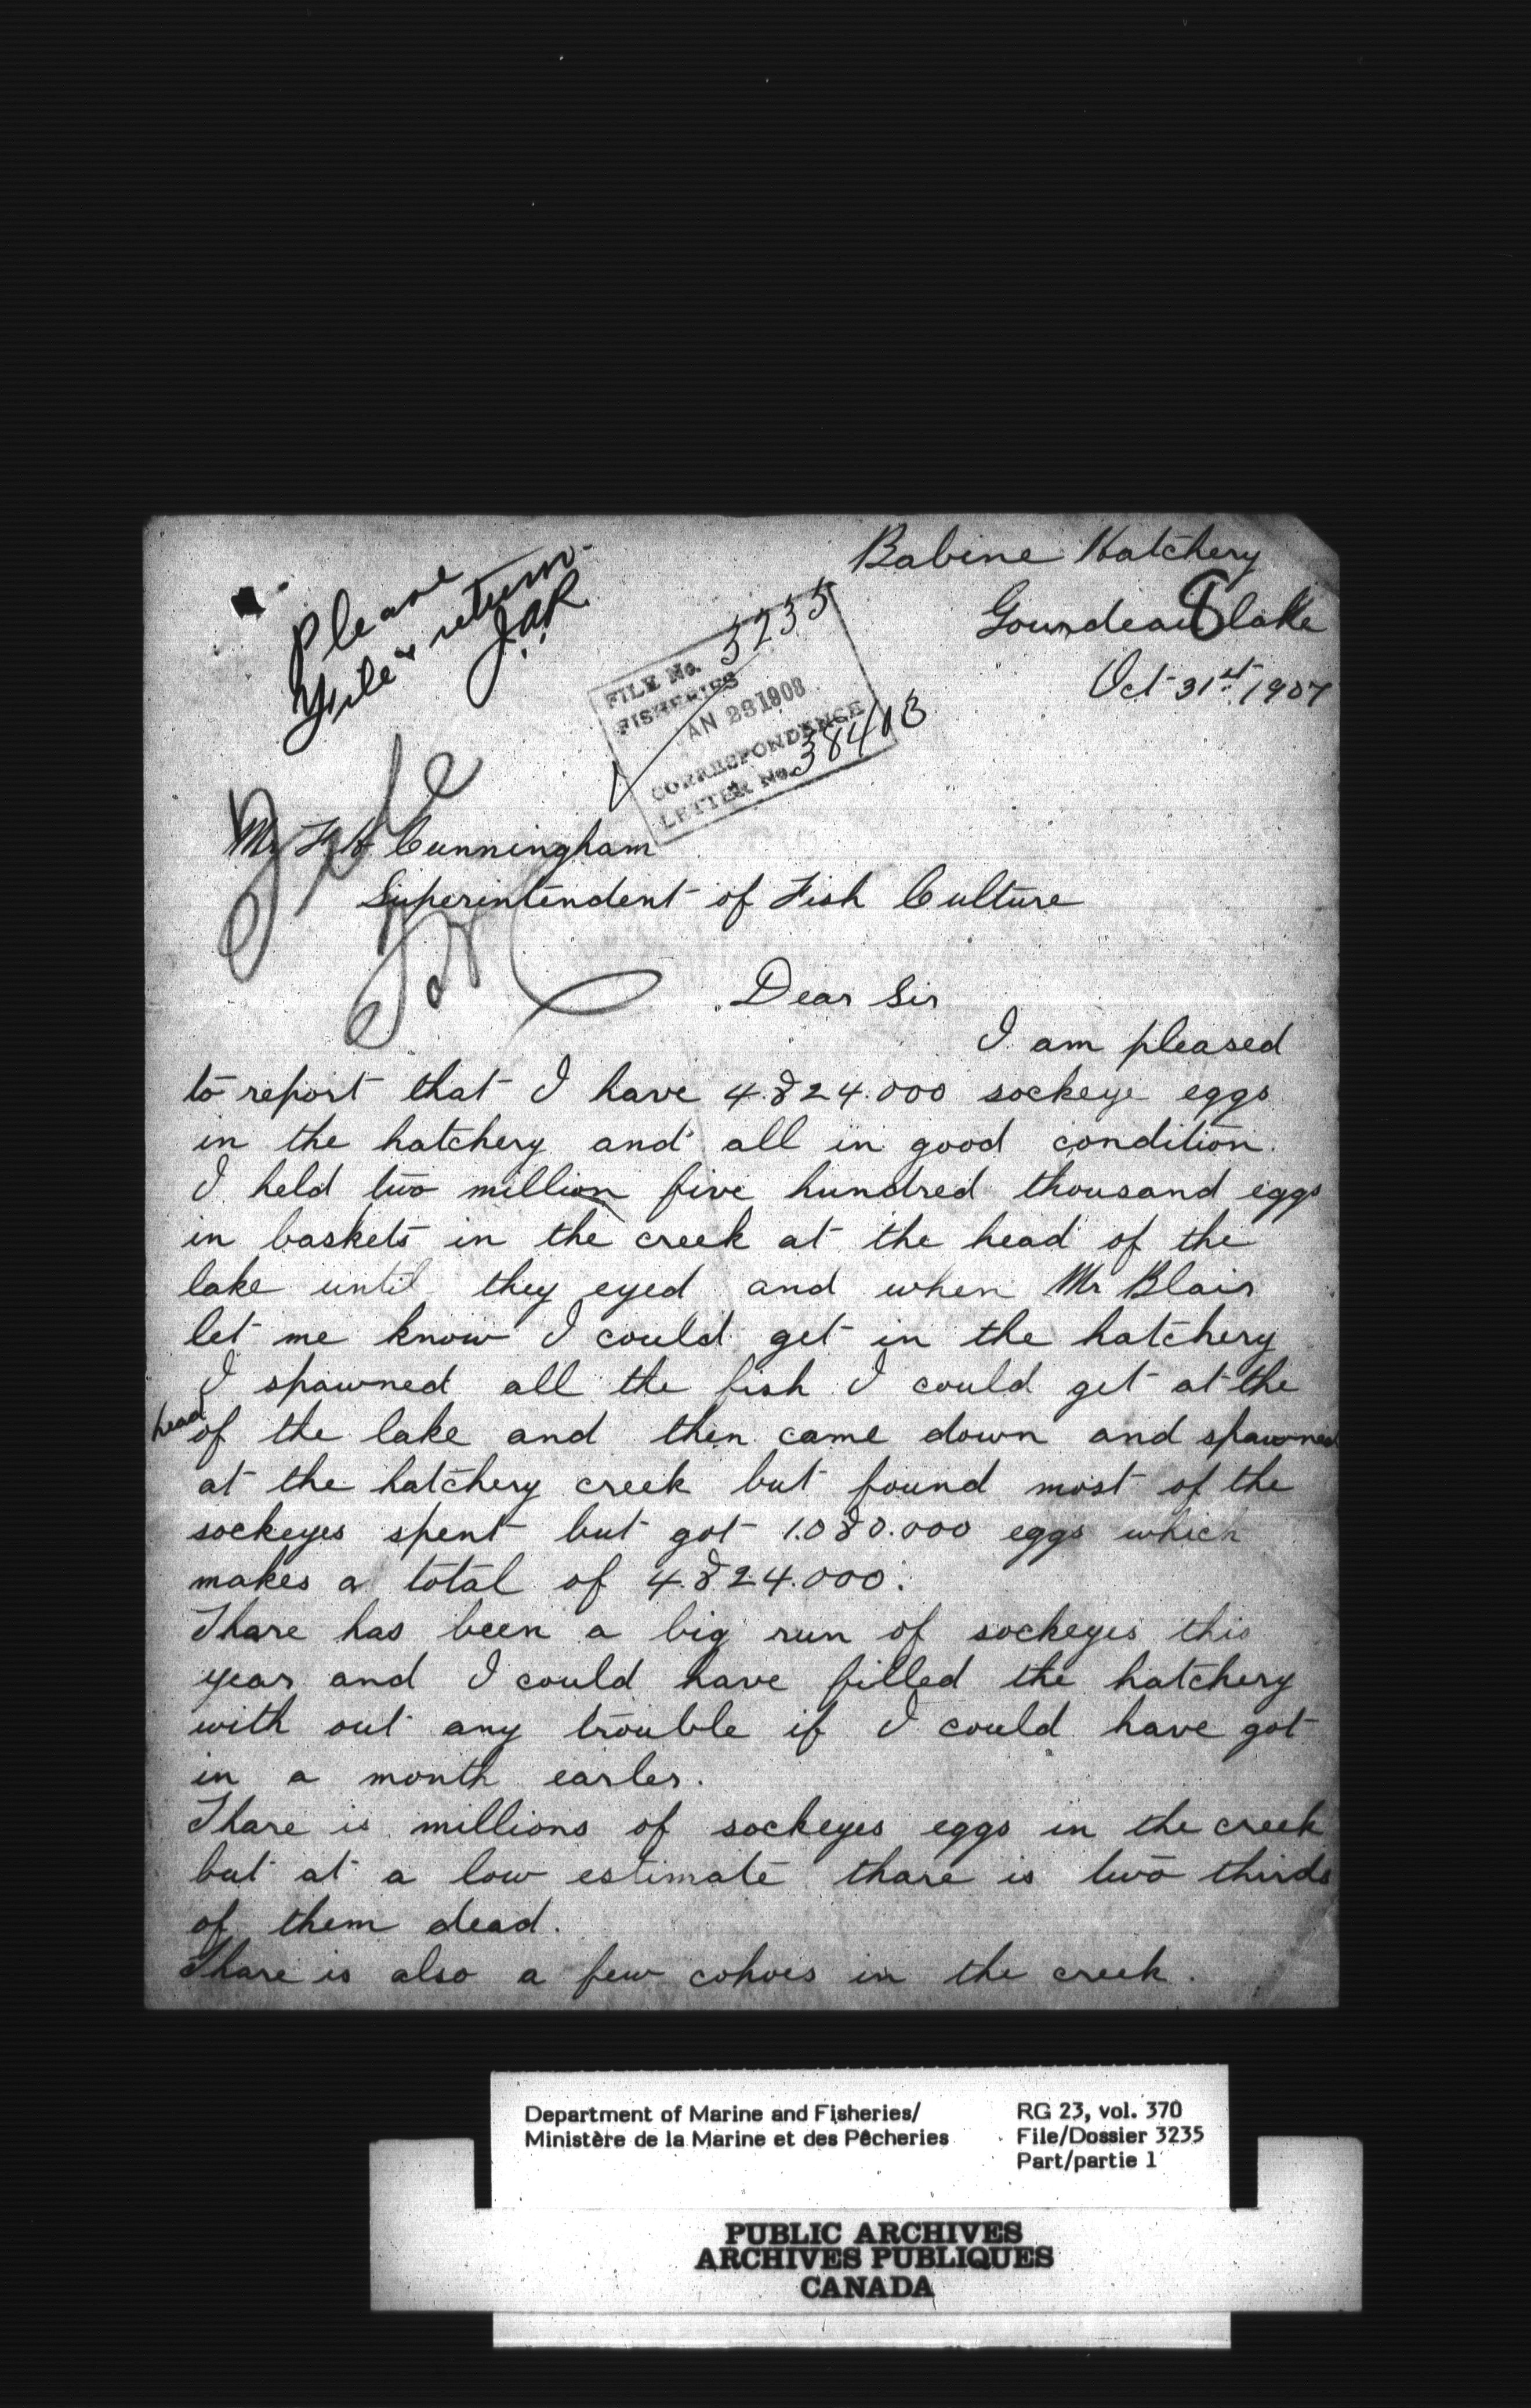 Babine Hatchery
Gourdeau lake
Oct 31st 1907
Please
file & return
J.A.R.
FILE No. 3235
FISHERIES
JAN 28 1908
CORRESPONDENCE
LETTER No. 38413
File
Mr F H Cunningham
Superintendent of Fish Culture
Dear Sir
I am pleased
to report that I have 4.824.000 sockeye eggs
in the hatchery and all in good condition.
I held two million five hundred thousand eggs
in baskets in the creek at the head of the
lake until they eyed and when Mr Blair
let me know I could get in the hatchery
I spawned all the fish I could get at the
head of the lake and then came down and spawned
at the hatchery creek but found most of the
sockeyes spent but got 1.080.000 eggs which
makes a total of 4.824.000.
Thare has been a big run of sockeyes this
year and I could have filled the hatchery
with out any trouble if I could have got
in a month earler.
Thare is millions of sockeyes eggs in the creek
but at a low estimate thare is two thirds
of them dead.
Thare is also a few cohoes in the creek.
Department of Marine and Fisheries/
Ministère de la Marine et des Pêcheries
RG 23, vol. 370
File/Dossier 3235
Part/partie 1
PUBLIC ARCHIVES
ARCHIVES PUBLIQUES
CANADA